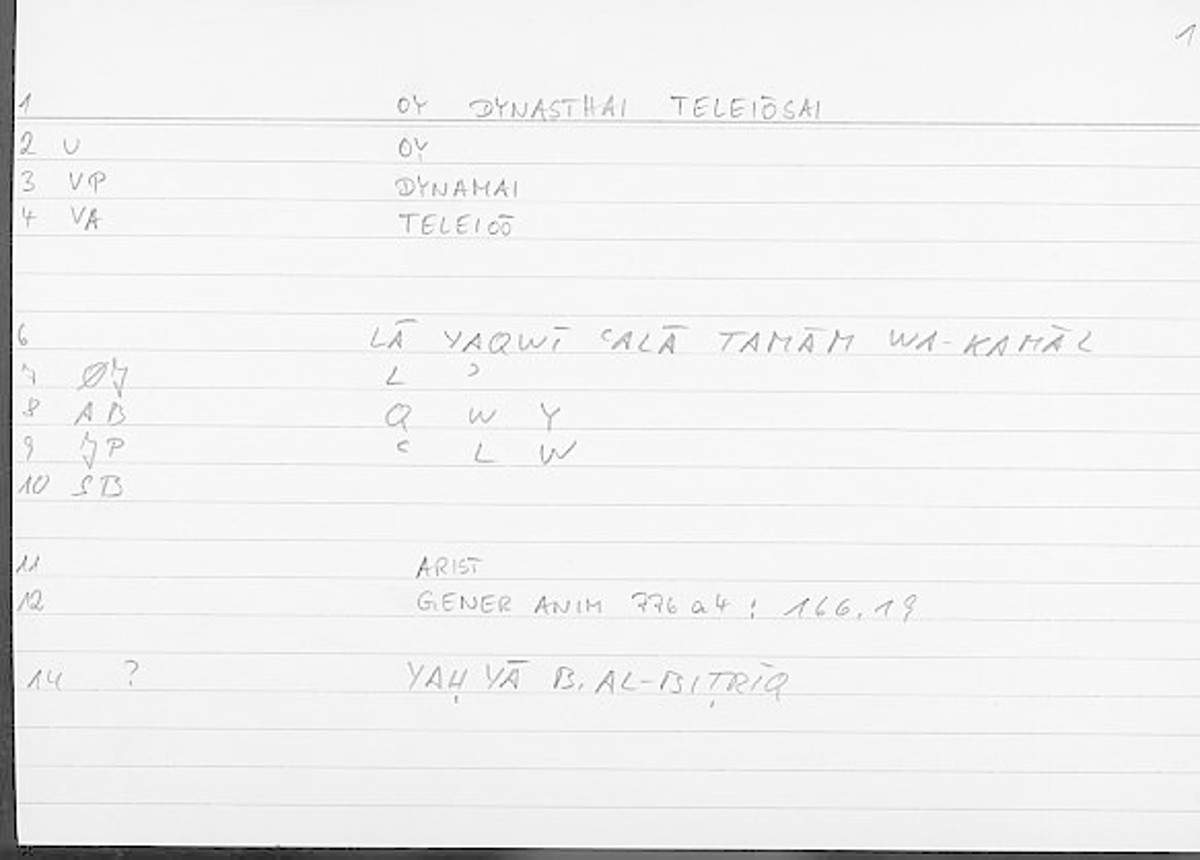 1
1 OY DYNASTHAI TELEIŌSAI
2 U OY
3 VP DYNAMAI
4 VA TELEIOŌ
6 LĀ YAQWĪ ʿALĀ TAMĀM WA-KAMĀL
7 ØJ L ʾ
8 AB Q W Y
9 JP ʿ L W
10 SB
11 ARIST
12 GENER ANIM 776a4; 166.19
14 ? YAḤYĀ B. AL-BIṬRĪQ